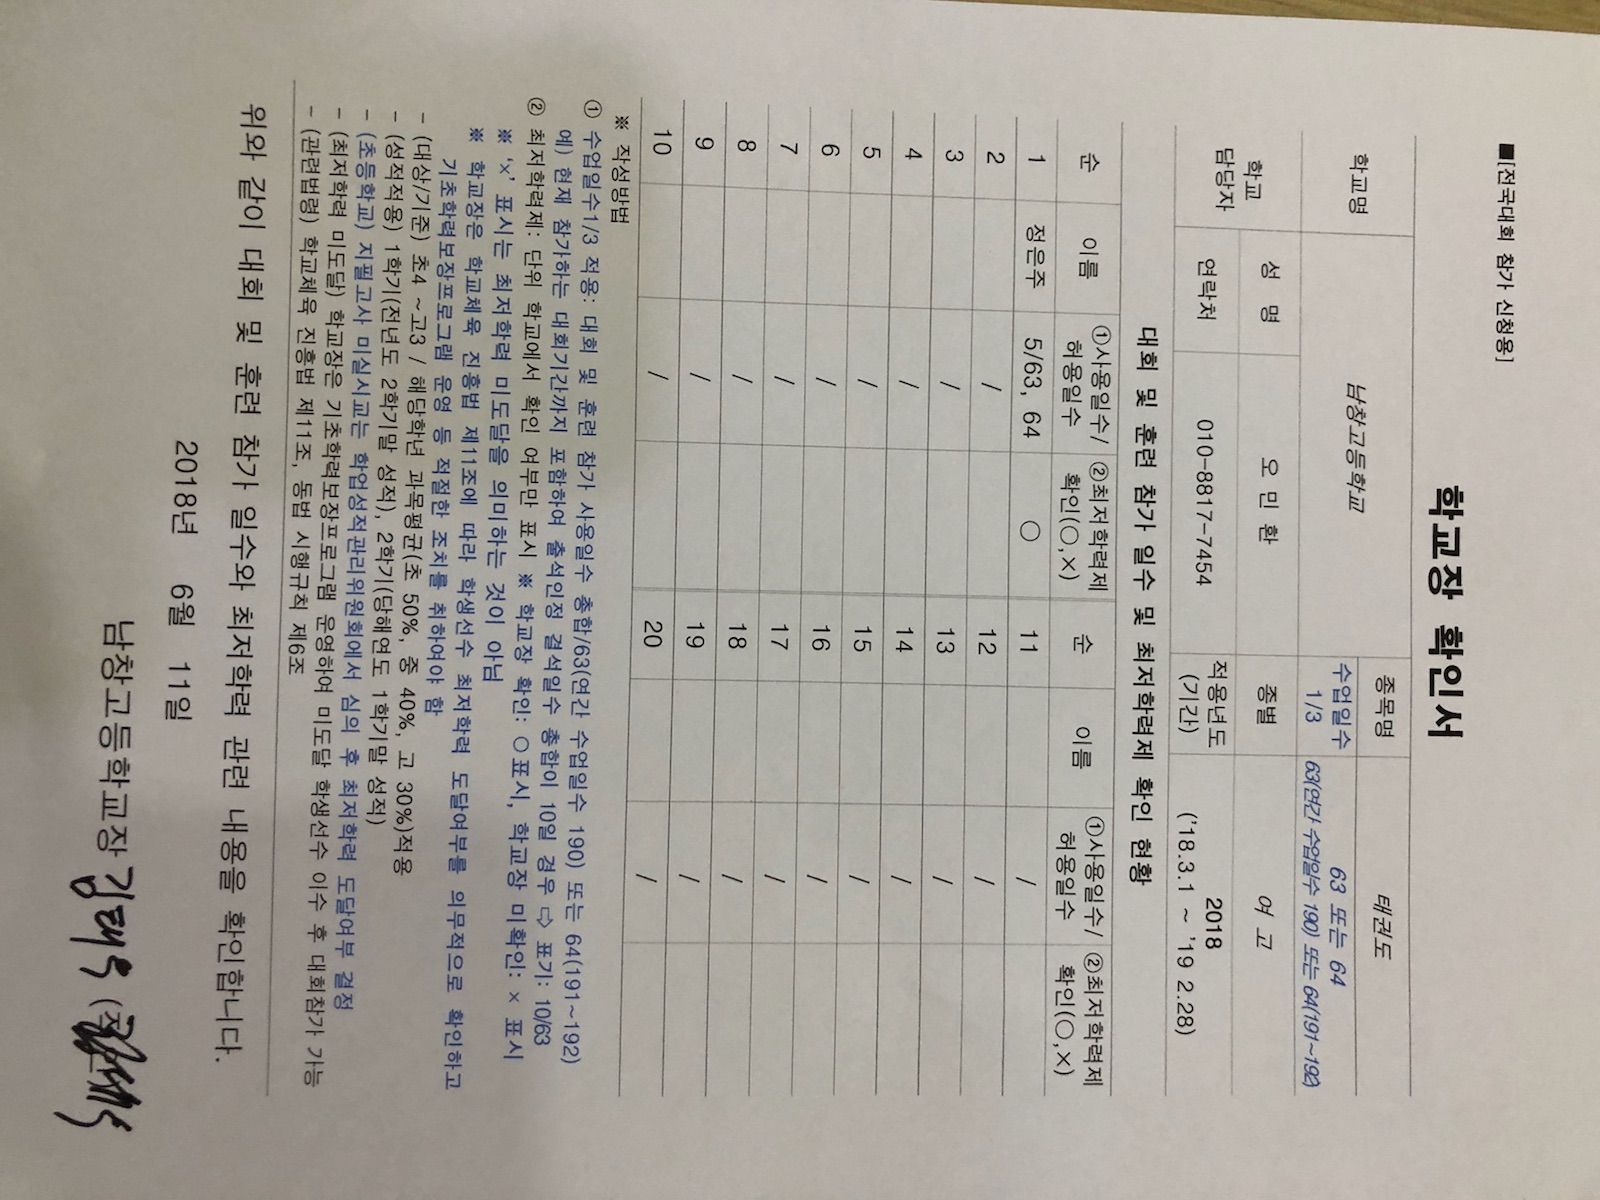 ■[전국대회 참가 신청용]
학교장 확인서
학교명 남창고등학교 종목명 태권도
수업일수 1/3 63 또는 64
63(연간 수업일수 190) 또는 64(191~192)
학교 담당자 성 명 오 민 환 종별 여 고
연락처 010-8817-7454 적용년도 (기간) 2018
('18.3.1 ~ '19 2.28)
대회 및 훈련 참가 일수 및 최저학력제 확인 현황
순 이름 ①사용일수/허용일수 ②최저학력제 확인(○,×) 순 이름 ①사용일수/허용일수 ②최저학력제 확인(○,×)
1 정은주 5/63, 64 ○ 11 /
2 / 12 /
3 / 13 /
4 / 14 /
5 / 15 /
6 / 16 /
7 / 17 /
8 / 18 /
9 / 19 /
10 / 20 /
※ 작성방법
① 수업일수1/3 적용: 대회 및 훈련 참가 사용일수 총합/63(연간 수업일수 190) 또는 64(191~192)
예) 현재 참가하는 대회기간까지 포함하여 출석인정 결석일수 총합이 10일 경우 ⇨ 표기: 10/63
② 최저학력제: 단위 학교에서 확인 여부만 표시 ※ 학교장 확인: ○표시, 학교장 미확인: × 표시
※ '×' 표시는 최저학력 미도달을 의미하는 것이 아님
※ 학교장은 학교체육 진흥법 제11조에 따라 학생선수 최저학력 도달여부를 의무적으로 확인하고
기초학력보장프로그램 운영 등 적절한 조치를 취하여야 함
- (대상/기준) 초4 ~고3 / 해당학년 과목평균(초 50%, 중 40%, 고 30%)적용
- (성적적용) 1학기(전년도 2학기말 성적), 2학기(당해연도 1학기말 성적)
- (초등학교) 지필고사 미실시교는 학업성적관리위원회에서 심의 후 최저학력 도달여부 결정
- (최저학력 미도달) 학교장은 기초학력보장프로그램 운영하여 미도달 학생선수 이수 후 대회참가 가능
- (관련법령) 학교체육 진흥법 제11조, 동법 시행규칙 제6조
위와 같이 대회 및 훈련 참가 일수와 최저학력 관련 내용을 확인합니다.
2018년 6월 11일
남창고등학교장